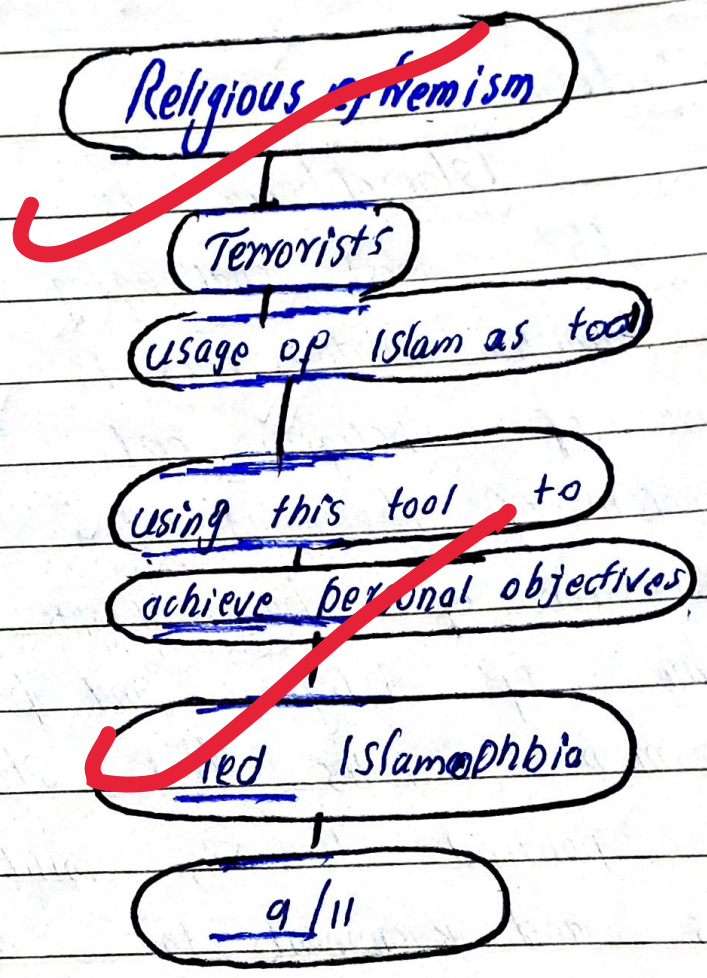 Religious extremism
Terrorists
usage of Islam as tool
using this tool to
achieve personal objectives
led Islamophbia
9/11